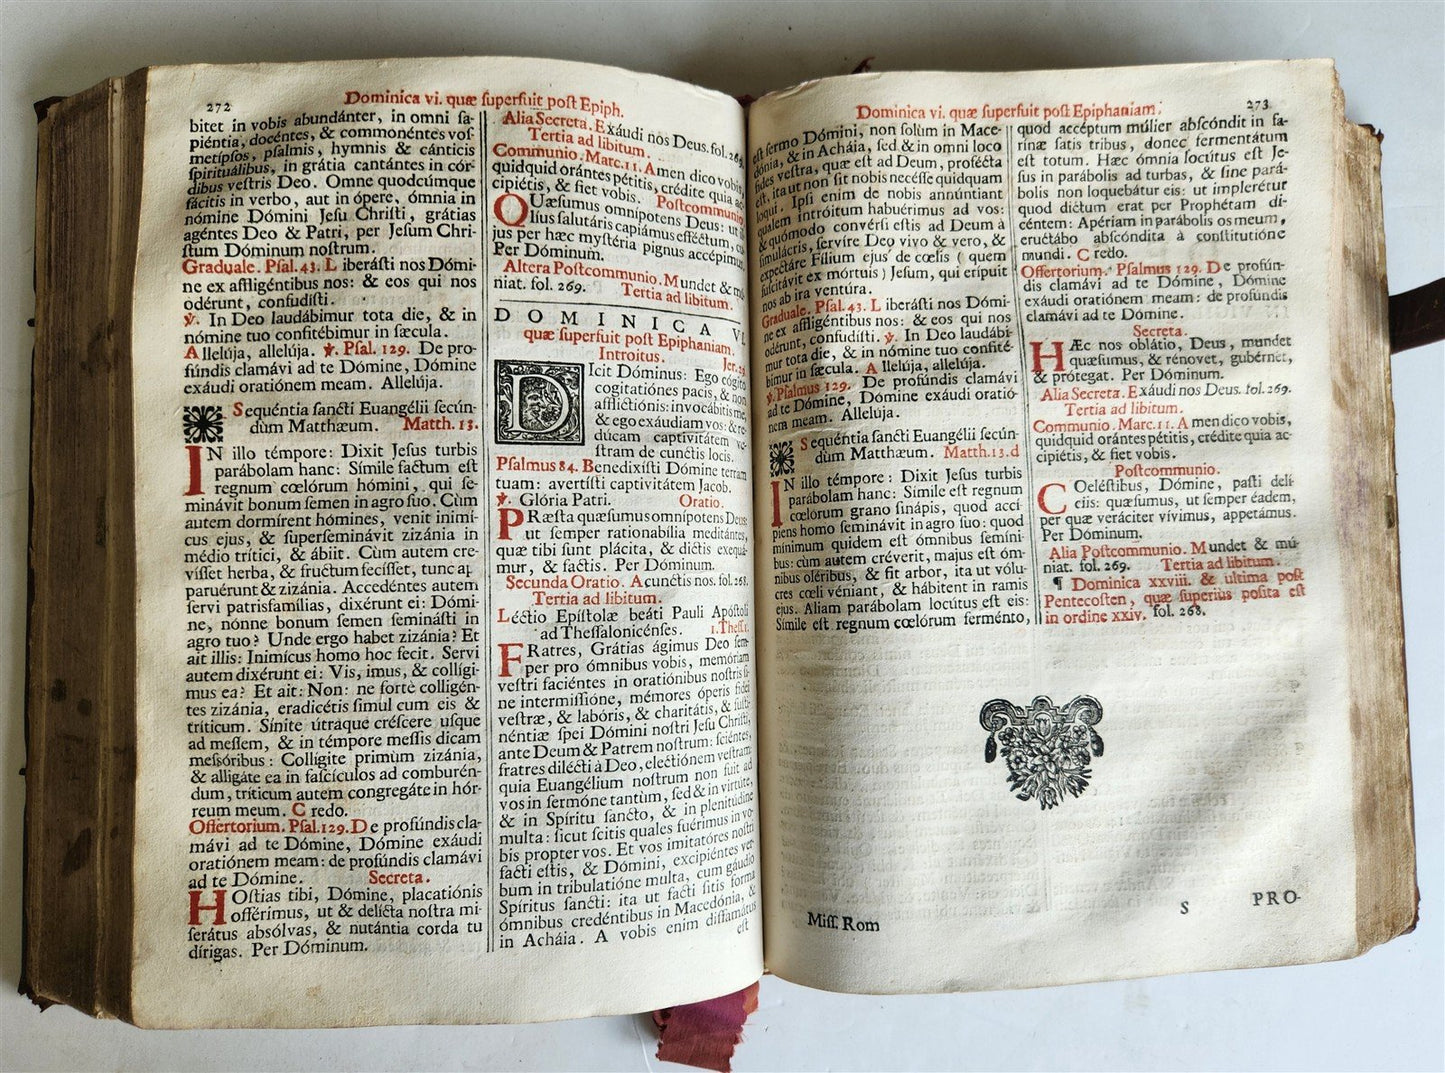 272
Dominica vi. quæ superfuit post Epiph.
bitet in vobis abundánter, in omni sa-
piéntia, docéntes, & commonéntes vos-
metípsos, psalmis, hymnis & cánticis
spirituálibus, in grátia cantántes in cór-
dibus vestris Deo. Omne quodcúmque
fácitis in verbo, aut in ópere, ómnia in
nómine Dómini Jesu Christi, grátias
agéntes Deo & Patri, per Jesum Chri-
stum Dóminum nostrum.
Graduale. Psal. 43. Liberásti nos Dómi-
ne ex affligéntibus nos: & eos qui nos
odérunt, confudísti.
℣. In Deo laudábimur tota die, & in
nómine tuo confitébimur in sæcula.
Allelúja, allelúja. ℣. Psal. 129. De pro-
fúndis clamávi ad te Dómine, Dómine
exáudi oratiónem meam. Allelúja.
Sequéntia sancti Euangélii secún-
dùm Matthæum. Matth. 13.
IN illo témpore: Dixit Jesus turbis
parábolam hanc: Símile factum est
regnum cœlórum hómini, qui se-
minávit bonum semen in agro suo. Cùm
autem dormírent hómines, venit inimí-
cus ejus, & superseminávit zizánia in
médio trítici, & ábiit. Cùm autem cre-
vísset herba, & fructum fecísset, tunc ap
paruérunt & zizánia. Accedéntes autem
servi patrisfamílias, dixérunt ei: Dómi-
ne, nónne bonum semen seminásti in
agro tuo? Unde ergo habet zizánia? Et
ait illis: Inimícus homo hoc fecit. Servi
autem dixérunt ei: Vis, imus, & collígi-
mus ea? Et ait: Non: ne fortè colligén-
tes zizánia, eradicétis simul cum eis &
tríticum. Sínite útraque créscere usque
ad messem, & in témpore messis dicam
messóribus: Collígite primùm zizánia,
& alligáte ea in fascículos ad comburén-
dum, tríticum autem congregáte in hór-
reum meum. Credo.
Offertorium. Psal. 129. De profúndis cla-
mávi ad te Dómine, Dómine exáudi
oratiónem meam: de profúndis clamávi
ad te Dómine. Secreta.
HOstias tibi, Dómine, placatiónis
offérimus, ut & delícta nostra mi-
serátus absólvas, & nutántia corda tu
dírigas. Per Dóminum.
Alia Secreta. Exáudi nos Deus. fol. 269.
Tertia ad libitum.
Communio. Marc. 11. Amen dico vobis,
quidquid orántes pétitis, crédite quia ac-
cipiétis, & fiet vobis. Postcommunio
QUæsumus omnípotens Deus: ut il-
lius salutáris capiámus efféctum, cu-
jus per hæc mystéria pignus accépimus.
Per Dóminum.
Altera Postcommunio. Mundet & mú-
niat. fol. 269. Tertia ad libitum.
DOMINICA VI.
quæ superfuit post Epiphaniam.
Introitus. Jer. 29.
DIcit Dóminus: Ego cógito
cogitatiónes pacis, & non
afflictiónis: invocábitis me,
& ego exáudiam vos: & re-
dúcam captivitátem ve-
stram de cunctis locis.
Psalmus 84. Benedixísti Dómine terram
tuam: avertísti captivitátem Jacob.
℣. Glória Patri. Oratio.
PRæsta quæsumus omnípotens Deus:
ut semper rationabília meditántes,
quæ tibi sunt plácita, & dictis exequá-
mur, & factis. Per Dóminum.
Secunda Oratio. A cunctis nos. fol. 268.
Tertia ad libitum.
Léctio Epístolæ beáti Pauli Apóstoli
ad Thessalonicénses. 1. Thess. 1.
FRatres, Grátias ágimus Deo sem-
per pro ómnibus vobis, memóriam
vestri faciéntes in oratiónibus nostris si-
ne intermissióne, mémores óperis fídei
vestræ, & labóris, & charitátis, & susti-
néntiæ spei Dómini nostri Jesu Christi,
ante Deum & Patrem nostrum: sciéntes,
fratres dilécti à Deo, electiónem vestram:
quia Euangélium nostrum non fuit ad
vos in sermóne tantùm, sed & in virtúte,
& in Spíritu sancto, & in plenitúdine
multa: sicut scitis quales fuérimus in vo-
bis propter vos. Et vos imitatóres nostri
facti estis, & Dómini, excipiéntes ver-
bum in tribulatióne multa, cum gáudio
Spíritus sancti: ita ut facti sitis forma
ómnibus credéntibus in Macedónia, &
in Acháia. A vobis enim diffamátus
est
Dominica vi. quæ superfuit post Epiphaniam.
273
est sermo Dómini, non solùm in Mace-
dónia, & in Acháia, sed & in omni loco
fides vestra, quæ est ad Deum, profécta
est, ita ut non sit nobis necésse quidquam
loqui. Ipsi enim de nobis annúntiant
qualem intróitum habuérimus ad vos:
& quómodo convérsi estis ad Deum à
simulácris, servíre Deo vivo & vero, &
expectáre Fílium ejus de cœlis (quem
suscitávit ex mórtuis) Jesum, qui erípuit
nos ab ira ventúra.
Graduale. Psal. 43. Liberásti nos Dómi-
ne ex affligéntibus nos: & eos qui nos
odérunt, confudísti. ℣. In Deo laudábi-
mur tota die, & in nómine tuo confité-
bimur in sæcula. Allelúja, allelúja.
℣. Psalmus 129. De profúndis clamávi
ad te Dómine, Dómine exáudi oratió-
nem meam. Allelúja.
Sequéntia sancti Euangélii secún-
dùm Matthæum. Matth. 13. d
IN illo témpore: Dixit Jesus turbis
parábolam hanc: Símile est regnum
cœlórum grano sinápis, quod accí
piens homo seminávit in agro suo: quod
mínimum quidem est ómnibus semíni-
bus: cùm autem créverit, majus est óm-
nibus oléribus, & fit arbor, ita ut vólu-
cres cœli véniant, & hábitent in ramis
ejus. Aliam parábolam locútus est eis:
Símile est regnum cœlórum ferménto,
quod accéptum múlier abscóndit in fa-
rínæ satis tribus, donec fermentátum
est totum. Hæc ómnia locútus est Je-
sus in parábolis ad turbas, & sine pará-
bolis non loquebátur eis: ut implerétur
quod dictum erat per Prophétam di-
céntem: Apériam in parábolis os meum,
eructábo abscóndita à constitutióne
mundi. Credo.
Offertorium. Psalmus 129. De profún-
dis clamávi ad te Dómine, Dómine
exáudi oratiónem meam: de profúndis
clamávi ad te Dómine.
Secreta.
HÆc nos oblátio, Deus, mundet
quæsumus, & rénovet, gubérnet,
& prótegat. Per Dóminum.
Alia Secreta. Exáudi nos Deus. fol. 269.
Tertia ad libitum.
Communio. Marc. 11. Amen dico vobis,
quidquid orántes pétitis, crédite quia ac-
cipiétis, & fiet vobis.
Postcommunio.
COeléstibus, Dómine, pasti deli-
ciis: quæsumus, ut semper éadem,
per quæ veráciter vívimus, appetámus.
Per Dóminum.
Alia Postcommunio. Mundet & mú-
niat. fol. 269. Tertia ad libitum.
¶ Dominica xxviii. & ultima post
Pentecosten, quæ superius posita est
in ordine xxiv. fol. 268.
Miss. Rom
S
PRO-